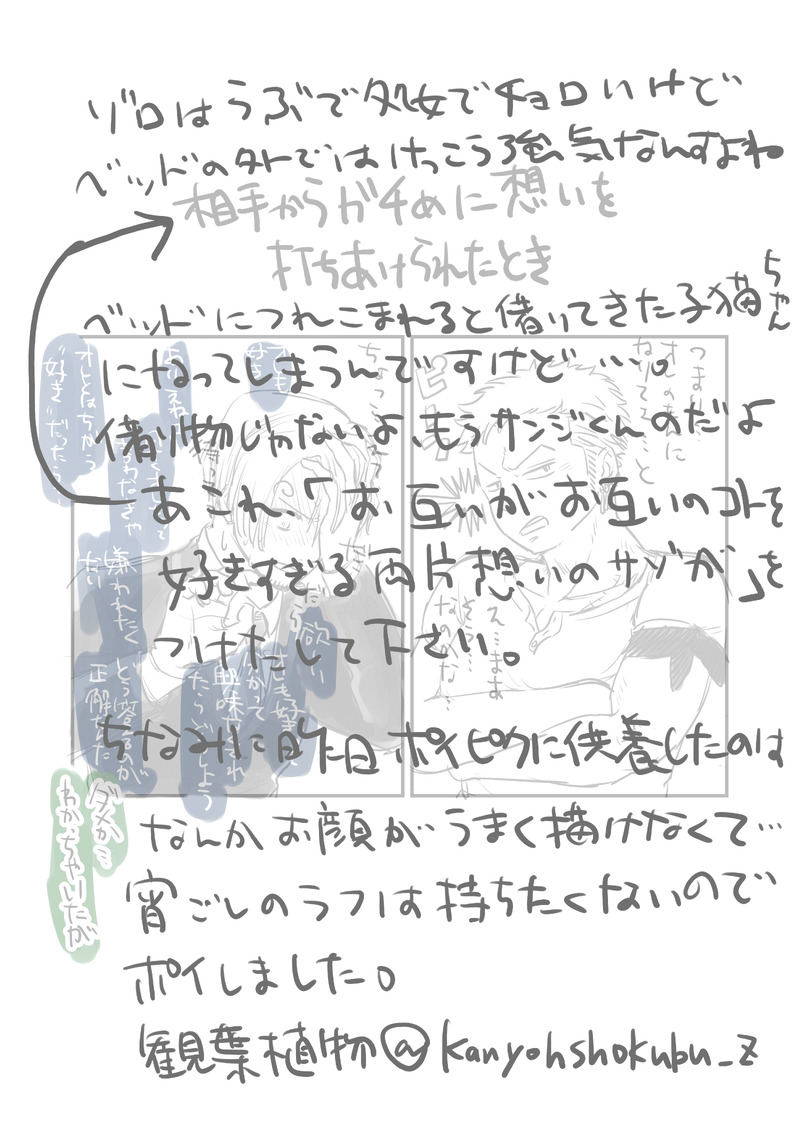 ゾロはうぶで処女でチョロいけど
ベッドの外ではけっこう強気なんすよね
相手からガチめに想いを
打ちあけられたとき
ベッドにつれこまれると借りてきた子猫ちゃん
になってしまうんですけど……。
借り物じゃないよ、もうサンジくんのだよ
あこれ、「お互いがお互いのコトを
好きすぎる両片想いのサゾが」を
つけたして下さい。
ちなみに昨日ポイピクに供養したのは
なんかお顔がうまく描けなくて…
宵ごしのラフは持ちたくないので
ポイしました。
観葉植物@kanyohshokubu_z
オレとはちがう
"好き"だったら
嫌われたく
ない
どう答るのが
正解だった
ダメか…
わかっちゃいたが